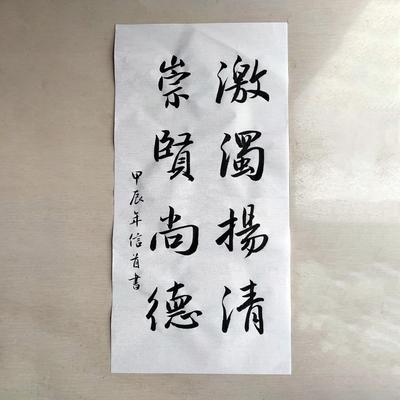 激濁揚清
崇賢尚德
甲辰年信首書